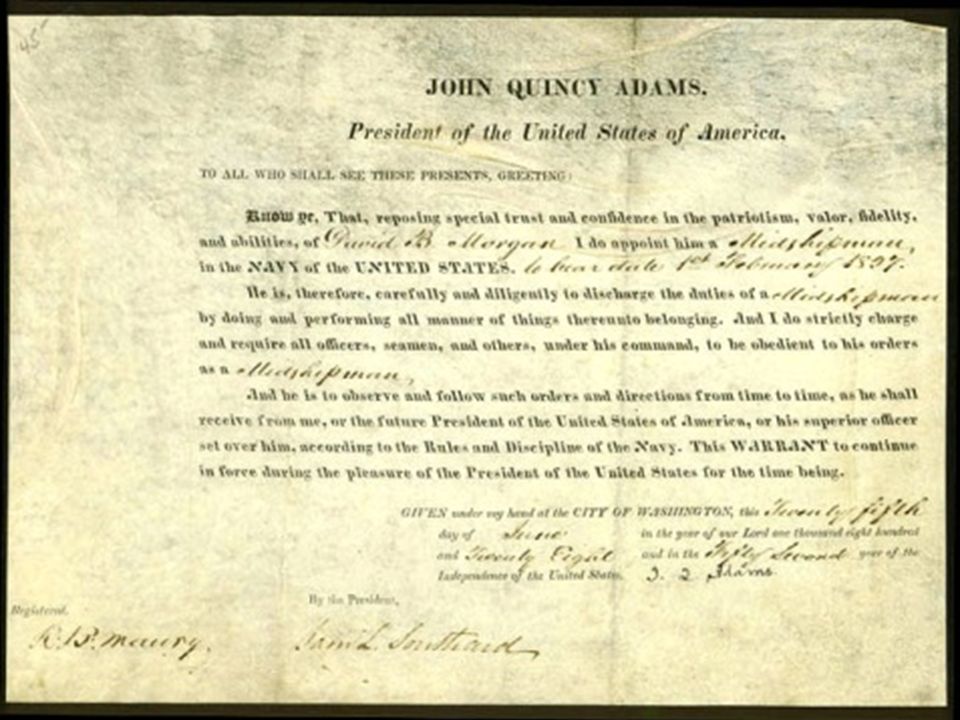 45
JOHN QUINCY ADAMS,
President of the United States of America.
TO ALL WHO SHALL SEE THESE PRESENTS, GREETING:
Know ye, That, reposing special trust and confidence in the patriotism, valor, fidelity,
and abilities, of David B Morgan I do appoint him a Midshipman,
in the NAVY of the UNITED STATES, to bear date 1st February 1827.
He is, therefore, carefully and diligently to discharge the duties of a Midshipman
by doing and performing all manner of things thereunto belonging. And I do strictly charge
and require all officers, seamen, and others, under his command, to be obedient to his orders
as a Midshipman,
And he is to observe and follow such orders and directions from time to time, as he shall
receive from me, or the future President of the United States of America, or his superior officer
set over him, according to the Rules and Discipline of the Navy. This WARRANT to continue
in force during the pleasure of the President of the United States for the time being.
GIVEN under my hand at the CITY OF WASHINGTON, this Twenty fifth
day of June in the year of our Lord one thousand eight hundred
and Twenty Eight and in the Fifty Second year of the
Independence of the United States. J. Q. Adams
By the President,
Registered.
R. B. Maury. Sam L. Southard